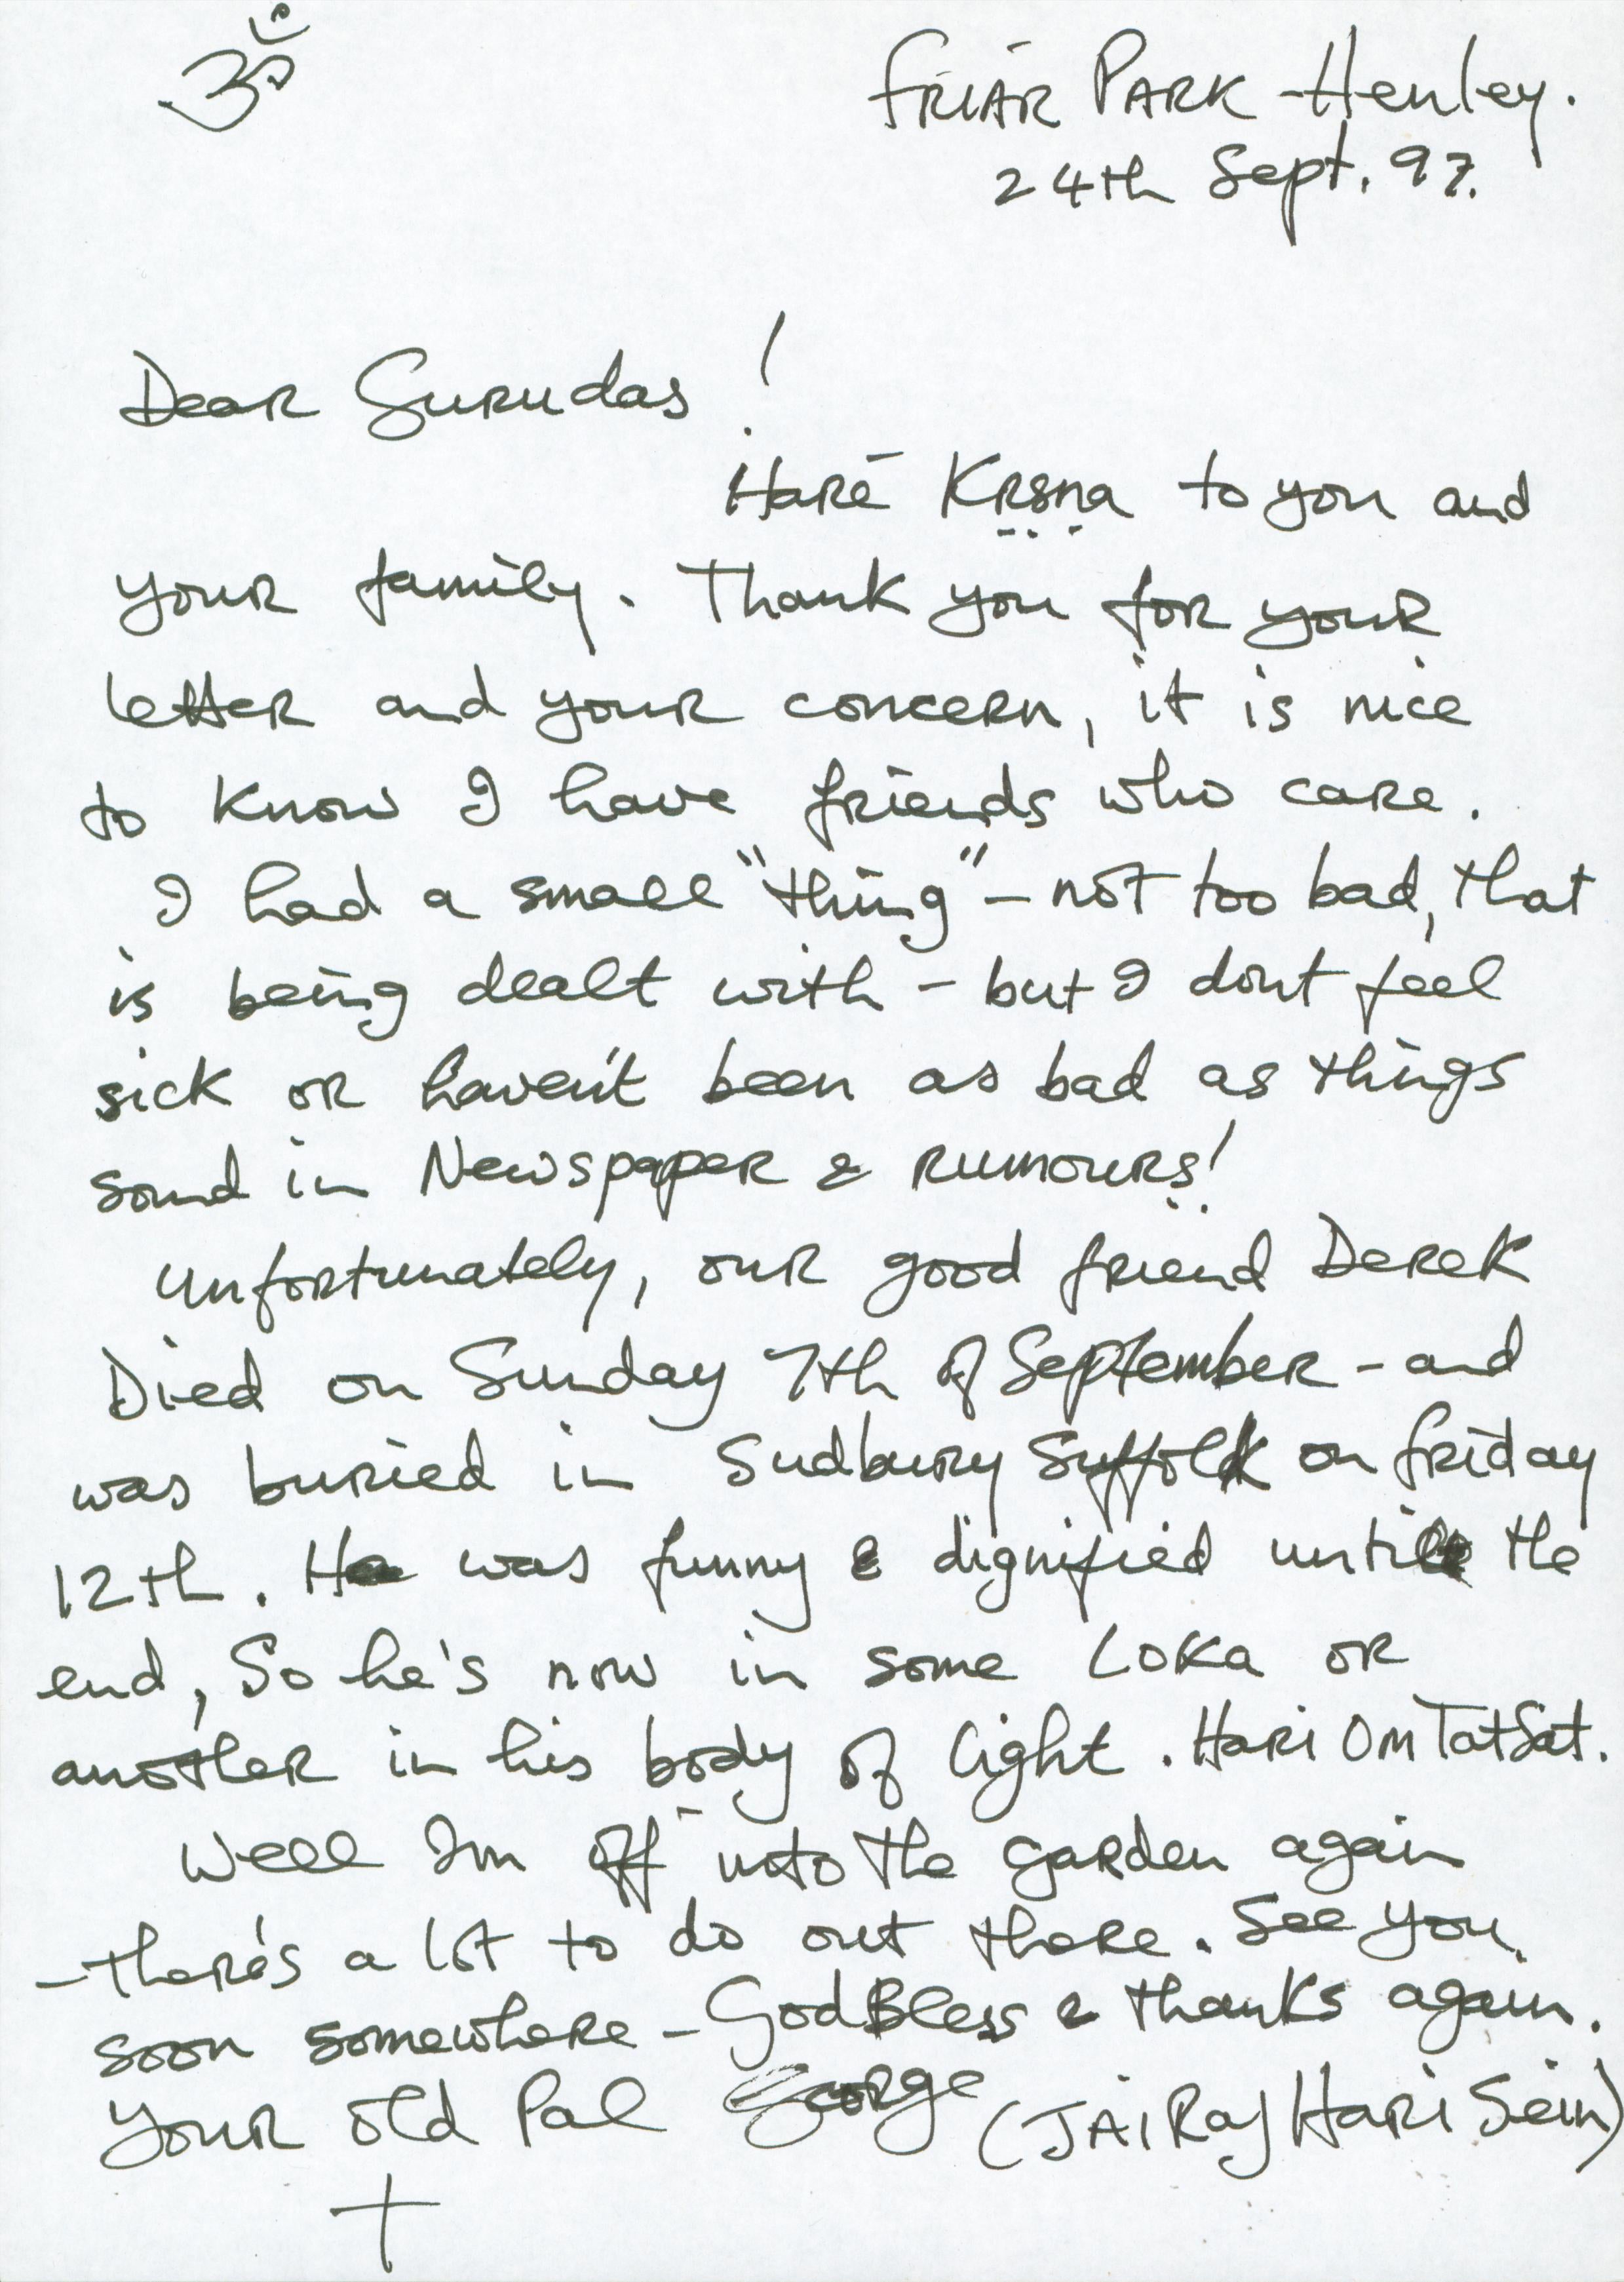 ॐ
FRIAR PARK - Henley.
24th Sept. 97.
Dear Gurudas!
Harē Kṛṣṇa to you and
your family. Thank you for your
letter and your concern, it is nice
to know I have friends who care.
I had a small "thing" - not too bad, that
is being dealt with - but I dont feel
sick or haven't been as bad as things
sound in Newspaper & RUMOURS!
Unfortunately, our good friend Derek
Died on Sunday 7th of September - and
was buried in Sudbury Suffolk on friday
12th. He was funny & dignified until the
end, So he's now in some Loka or
another in his body of light. Hari Om Tat Sat.
Well Im off into the garden again
- there's a lot to do out there. See you
soon somewhere - God Bless & thanks again.
Your old Pal George (JAI Raj Hari Sein)
+